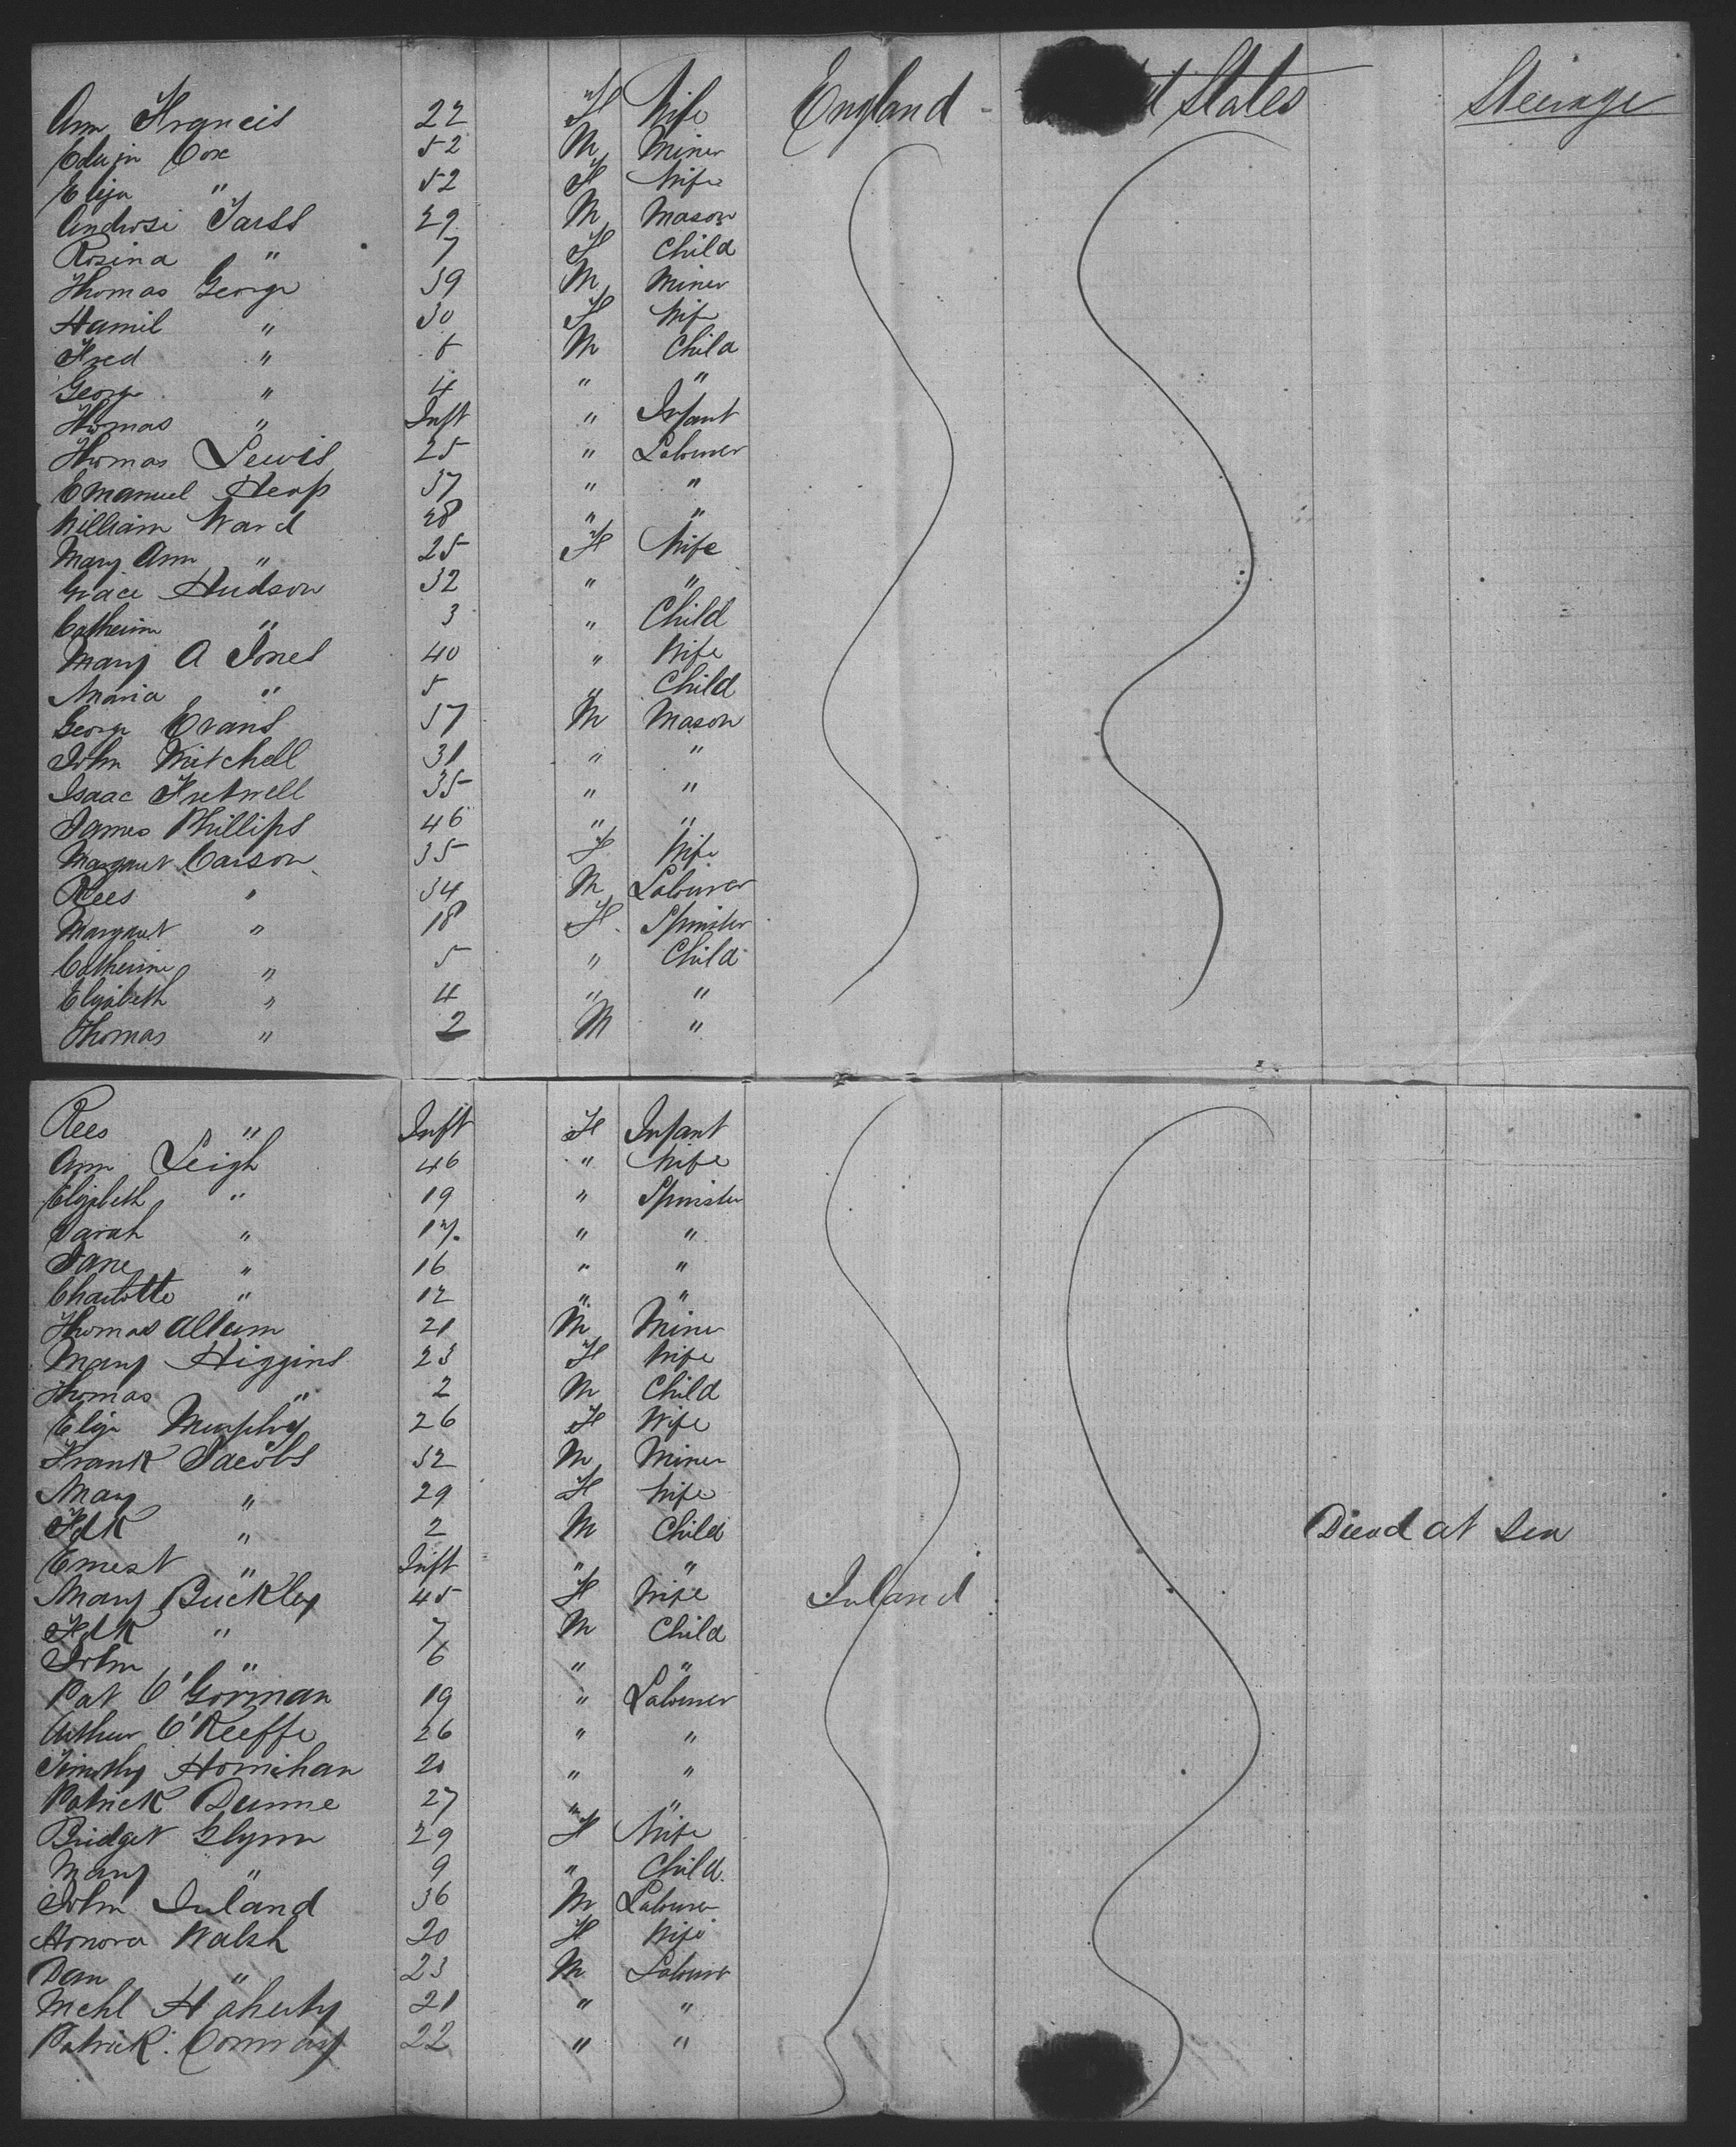 Ann Francis 22 " F Wife England - States Steerage
Edwin Cox 52 M Miner
Eliza " 52 F Wife
29 M Mason
Rosina " 7 F Child
Thomas George 39 M Miner
Hamil " 30 F Wife
Fred " M Child
George " 4 " "
Thomas " Inft " Infant
Thomas Lewis 25 " Labourer
Emanuel Heap 37 " "
William Ward 28 " "
Mary Ann " 25 F Wife
Grace Hudson 32 " "
Catherine " 3 " Child
Mary A Jones 40 " Wife
Maria " 5 " Child
George Evans 37 M Mason
John Mitchell 31 " "
Isaac Fretwell 35 " "
James Phillips 46 " "
Margaret Carson 35 F Wife
Rees " 34 M Labourer
Margaret " 18 F Spinster
Catherine " 5 " Child
Elizabeth " 4 " "
Thomas " 2 M "
Rees " Inft F Infant
Ann Leigh 46 " Wife
Elizabeth " 19 " Spinster
Sarah " 17. " "
Jane " 16 " "
Charlotte " 12 " "
Thomas Allum 21 M Miner
Mary Higgins 23 F Wife
Thomas " 2 M Child
Eliza Murphy 26 F Wife
Frank Jacobs 32 M Miner
Mary " 29 F Wife
Fdk " 2 M Child Diead at Sea
Ernest " Inft " "
Mary Buckley 45 F Wife Ireland
Fdk " 7 M Child
John " 6 " "
Pat O'Gorman 19 " Labourer
Arthur O'Keeffe 26 " "
Timothy Hornihan 20 " "
Patrick Dunne 27 " "
Bridget Glynn 29 F Wife
Mary " 9 " Child
John Ireland 36 M Labourer
Honora Walsh 20 F Wife
Dan " 23 M Labourer
Mchl Flaherty 21 " "
Patrick Conway 22 " "